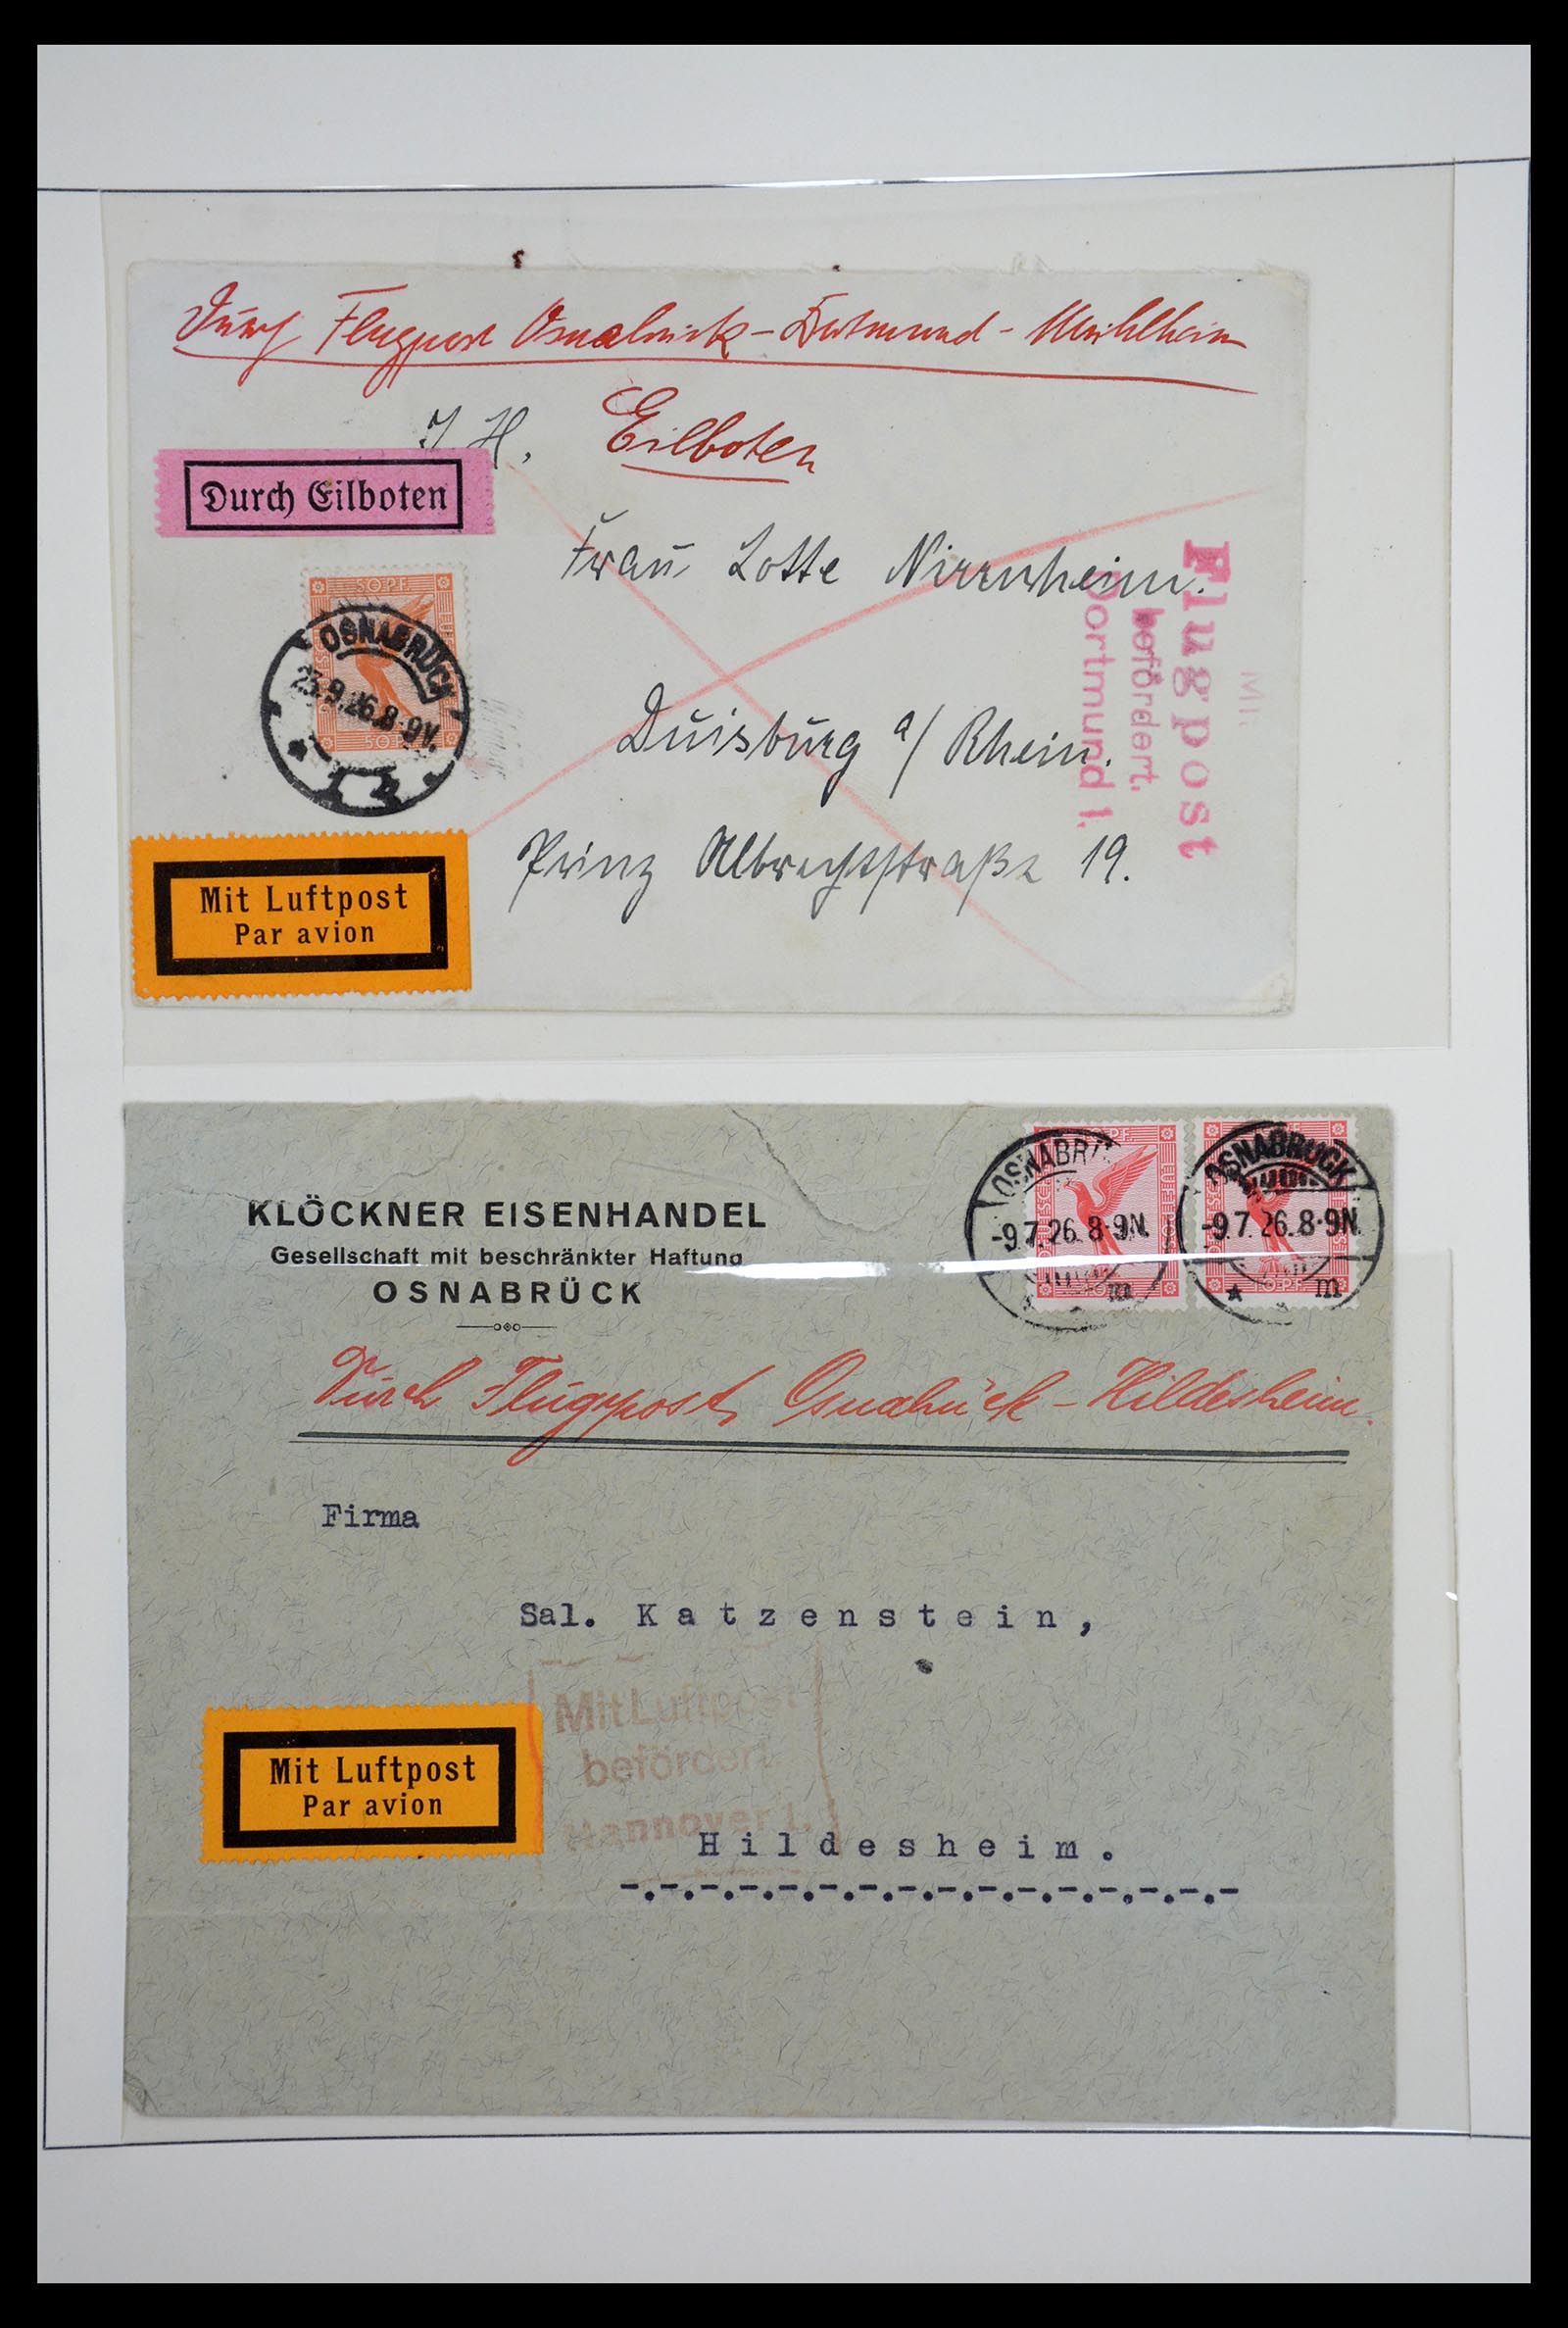 Durch Flugpost Osnabrück - Dortmund - Mühlheim
I. H. Eilboten
Durch Eilboten
Frau Lotte Nirrnheim.
50 PF
OSNABRÜCK
23.9.26.8-9V.
Duisburg a/ Rhein.
Prinz Albrechtstraße 19.
Mit
Flugpost
befördert.
Dortmund 1.
Mit Luftpost
Par avion
KLÖCKNER EISENHANDEL
Gesellschaft mit beschränkter Haftung
OSNABRÜCK
OSNABRÜCK
-9.7.26.8-9N.
m
OSNABRÜCK
-9.7.26.8-9N.
m
Durch Flugpost Osnabrück - Hildesheim.
Firma
Sal. Katzenstein,
Mit Luftpost
befördert
Hannover 1.
Mit Luftpost
Par avion
Hildesheim.